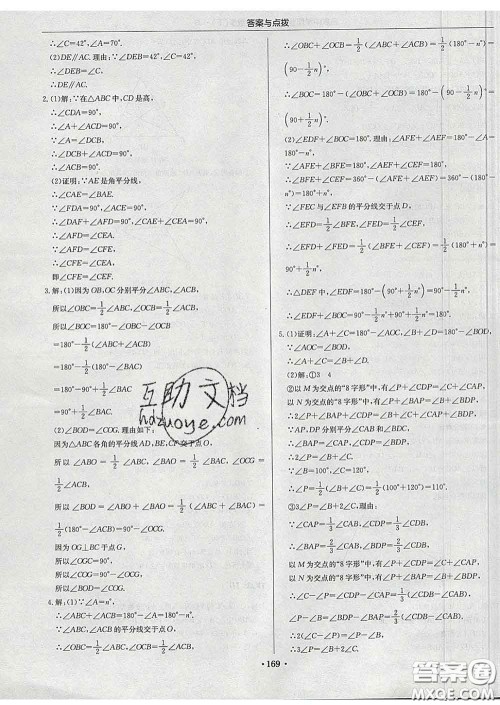 答案与点拨
∴∠C=42°,∠A=70°.
(2)DE∥AC.理由:∵∠DEB=42°,∠C=42°,
∴∠DEB=∠C,
∴DE∥AC.
2.(1)解:∵在△ABC中,CD是高,
∴∠ACB=90°,
∴∠A+∠ACD=90°,
∵∠A=∠DCB,
∴∠DCB+∠ACD=90°,
∴∠ACB=90°.
(2)证明:∵AE是角平分线,
∴∠CAE=∠BAE.
∵∠FDA=90°,∠ACE=90°,
∴∠DAF+∠AFD=90°,∠CAE+∠CEA=90°,
∴∠AFD=∠CEA.
∵∠AFD=∠CFE,
∴∠CFE=∠CEA,
即∠CFE=∠CEF.
3.解:(1)因为OB,OC分别平分∠ABC,∠ACB,
所以∠OBC=1/2∠ABC,∠OCB=1/2∠ACB,
所以∠BOC=180°-1/2(∠ABC+∠ACB)
=180°-1/2(180°-∠BAC)
=180°-90°+1/2∠BAC
=90°+1/2∠BAC.
(2)∠BOD=∠COG.理由如下:
因为△ABC各角的平分线AD,BE,CF交于点O,
所以∠ABO=1/2∠ABC,∠BAO=1/2∠BAC,∠OCG=
1/2∠ACB,
所以∠BOD=∠ABO+∠BAO=1/2(∠ABC+∠BAC)=
1/2(180°-∠ACB)=90°-∠OCG.
因为OG⊥BC于点G,
所以∠COG=90°-∠OCG,
所以∠BOD=∠COG.
4.解:(1)∵∠A=n°,
∴∠ABC+∠ACB=180°-∠A=180°-n°.
∵∠ABC,∠ACB的平分线交于点O,
∴∠OBC+∠OCB=1/2∠ABC+1/2∠ACB=1/2(180°-n°)=
(90-1/2n)°,
∴∠BOC=180°-(∠OBC+∠OCB)=180°-(90°-1/2n)°=
(90+1/2n)°.
(2)∠EDF+∠BOC=180°.理由:∵∠AFE+∠BFE+
∠AEF+∠CEF=360°,∠AFE+∠AEF=180°-∠A=
180°-n°,
∴∠BFE+∠CEF=360°-(∠AFE+∠AEF)=360°-(180°
-n°)=180°+n°.
∵∠FEC与∠EFB的平分线交于点D,
∴∠EFD=1/2∠BFE,∠DEF=1/2∠CEF,
∴∠EFD+∠FED=1/2(∠BFE+∠CEF)=1/2(180°+n°)=
90°+1/2n°,
∴∠EDF=180°-(90°+1/2n)°=90°-1/2n°,
∴∠EDF+∠BOC=90°-1/2n°+90°+1/2n°=180°.
5.(1)证明:∠A+∠C=180°-∠AOC,∠B+∠D=180°-∠BOD,
∵∠AOC=∠BOD,
∴∠A+∠C=∠B+∠D.
(2)解:①3 4
②以M为交点的“8字形”中,有∠P+∠CDP=∠C+∠CAP,
以N为交点的“8字形”中,有∠P+∠BAP=∠B+∠BDP,
∴2∠P+∠BAP+∠CDP=∠B+∠C+∠CAP+∠BDP.
∵AP,DP分别平分∠CAB,∠BDC,
∴∠BAP=∠CAP,∠CDP=∠BDP,
∴2∠P=∠B+∠C.
∵∠B=100°,∠C=120°,
∴∠P=1/2(∠B+∠C)=1/2(100°+120°)=110°.
③3∠P=∠B+2∠C.理由:
∵∠CAP=1/3∠CAB,∠CDP=1/3∠CDB,
∴∠BAP=2/3∠CAB,∠BDP=2/3∠CDB,
以M为交点的“8字形”中,有∠P+∠CDP=∠C+∠CAP,
以N为交点的“8字形”中,有∠P+∠BAP=∠B+∠BDP,
∴∠C-∠P=∠CDP-∠CAP=1/3(∠CDB-∠CAB),
∠P-∠B=∠BDP-∠BAP=2/3(∠CDB-∠CAB),
∴2(∠C-∠P)=∠P-∠B,
∴3∠P=∠B+2∠C.
·169·
互助文档
hdzuoye.com
答案圈
MXQE.COM